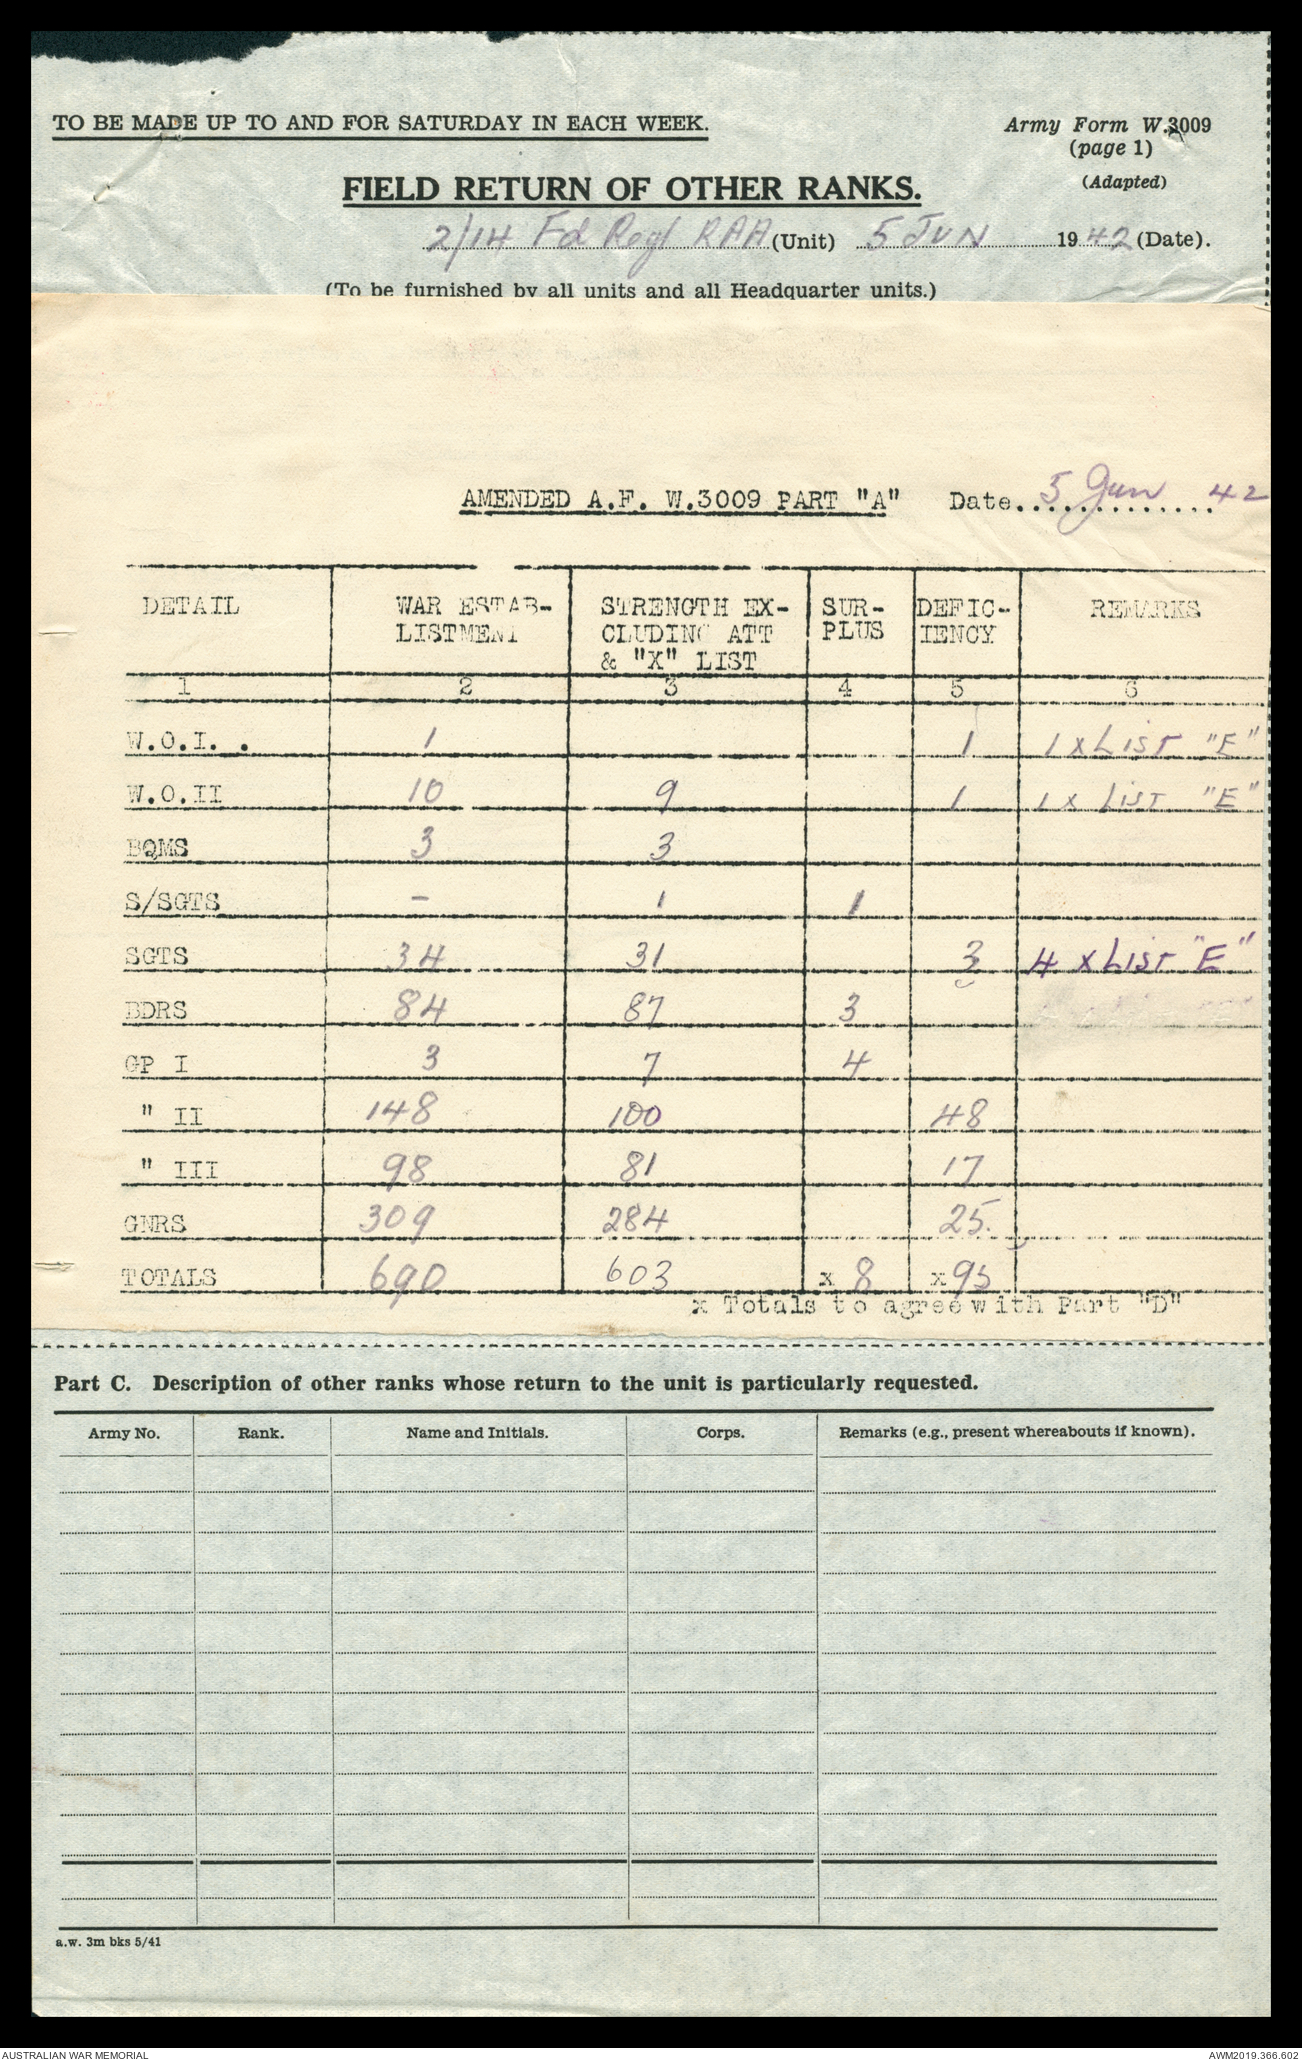 TO BE MADE UP TO AND FOR SATURDAY IN EACH WEEK.
Army Form W.3009
(page 1)
(Adapted)
FIELD RETURN OF OTHER RANKS.
2/14 Fd Regt RAA (Unit) 5 JUN 1942 (Date).
(To be furnished by all units and all Headquarter units.)
AMENDED A.F. W.3009 PART "A" Date 5 Jun 42
DETAIL WAR ESTAB- STRENGTH EX- SUR- DEFIC- REMARKS
LISTMENT CLUDING ATT PLUS IENCY
& "X" LIST
1 2 3 4 5 6
W.O.I. . 1 1 1 X LIST "E"
W.O.II 10 9 1 1 X LIST "E"
BQMS 3 3
S/SGTS - 1 1
SGTS 34 31 3 4 X LIST "E"
BDRS 84 87 3
GP I 3 7 4
" II 148 100 48
" III 98 81 17
GNRS 309 284 25.
TOTALS 690 603 x 8 x 95
x Totals to agree with Part "D"
Part C. Description of other ranks whose return to the unit is particularly requested.
Army No. Rank. Name and Initials. Corps. Remarks (e.g., present whereabouts if known).
a.w. 3m bks 5/41
AUSTRALIAN WAR MEMORIAL AWM2019.366.602